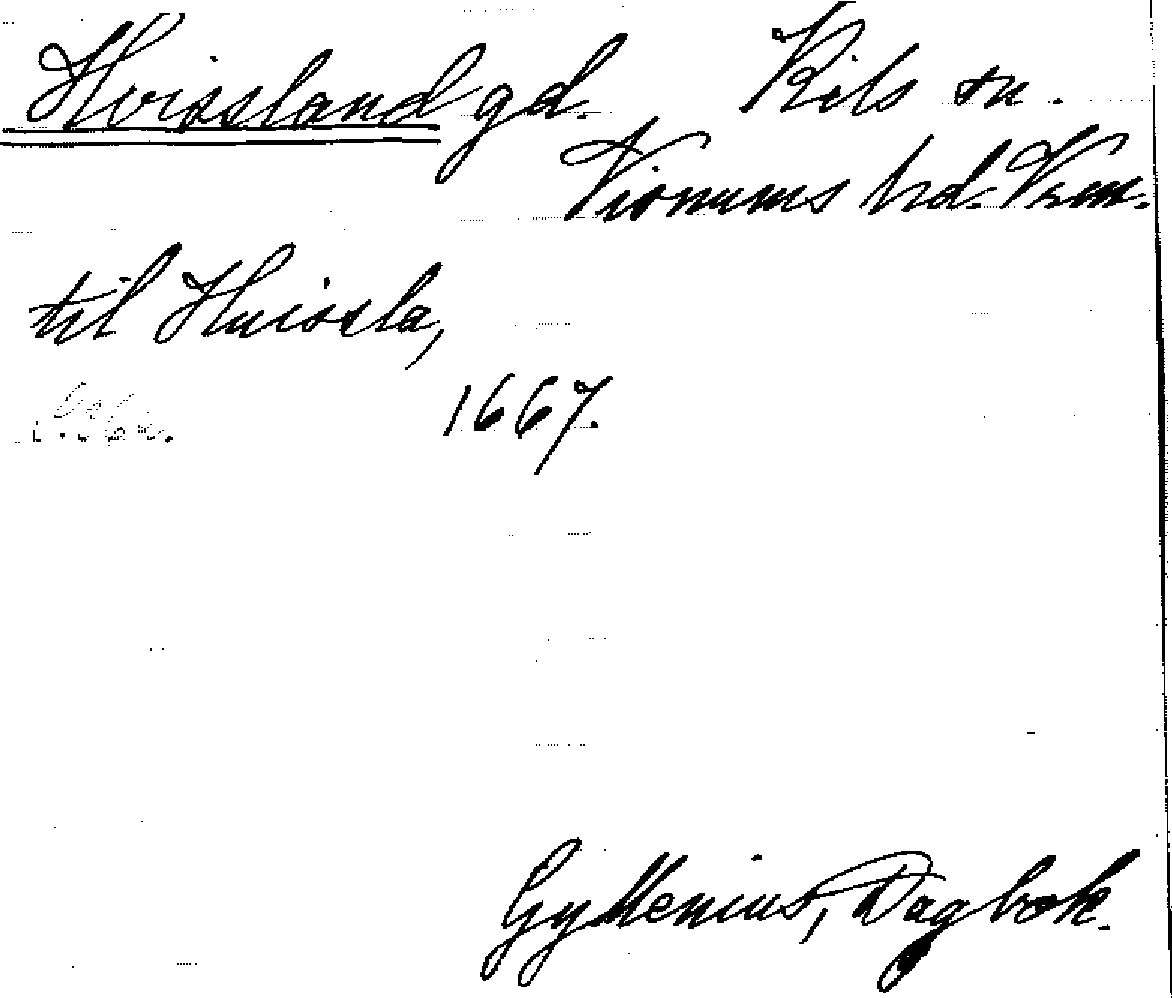 Hvissland gd. Kils sn.
Visnums hd. Vrm.
til Huissla,
1667.
Gyllenius, Dagbok.